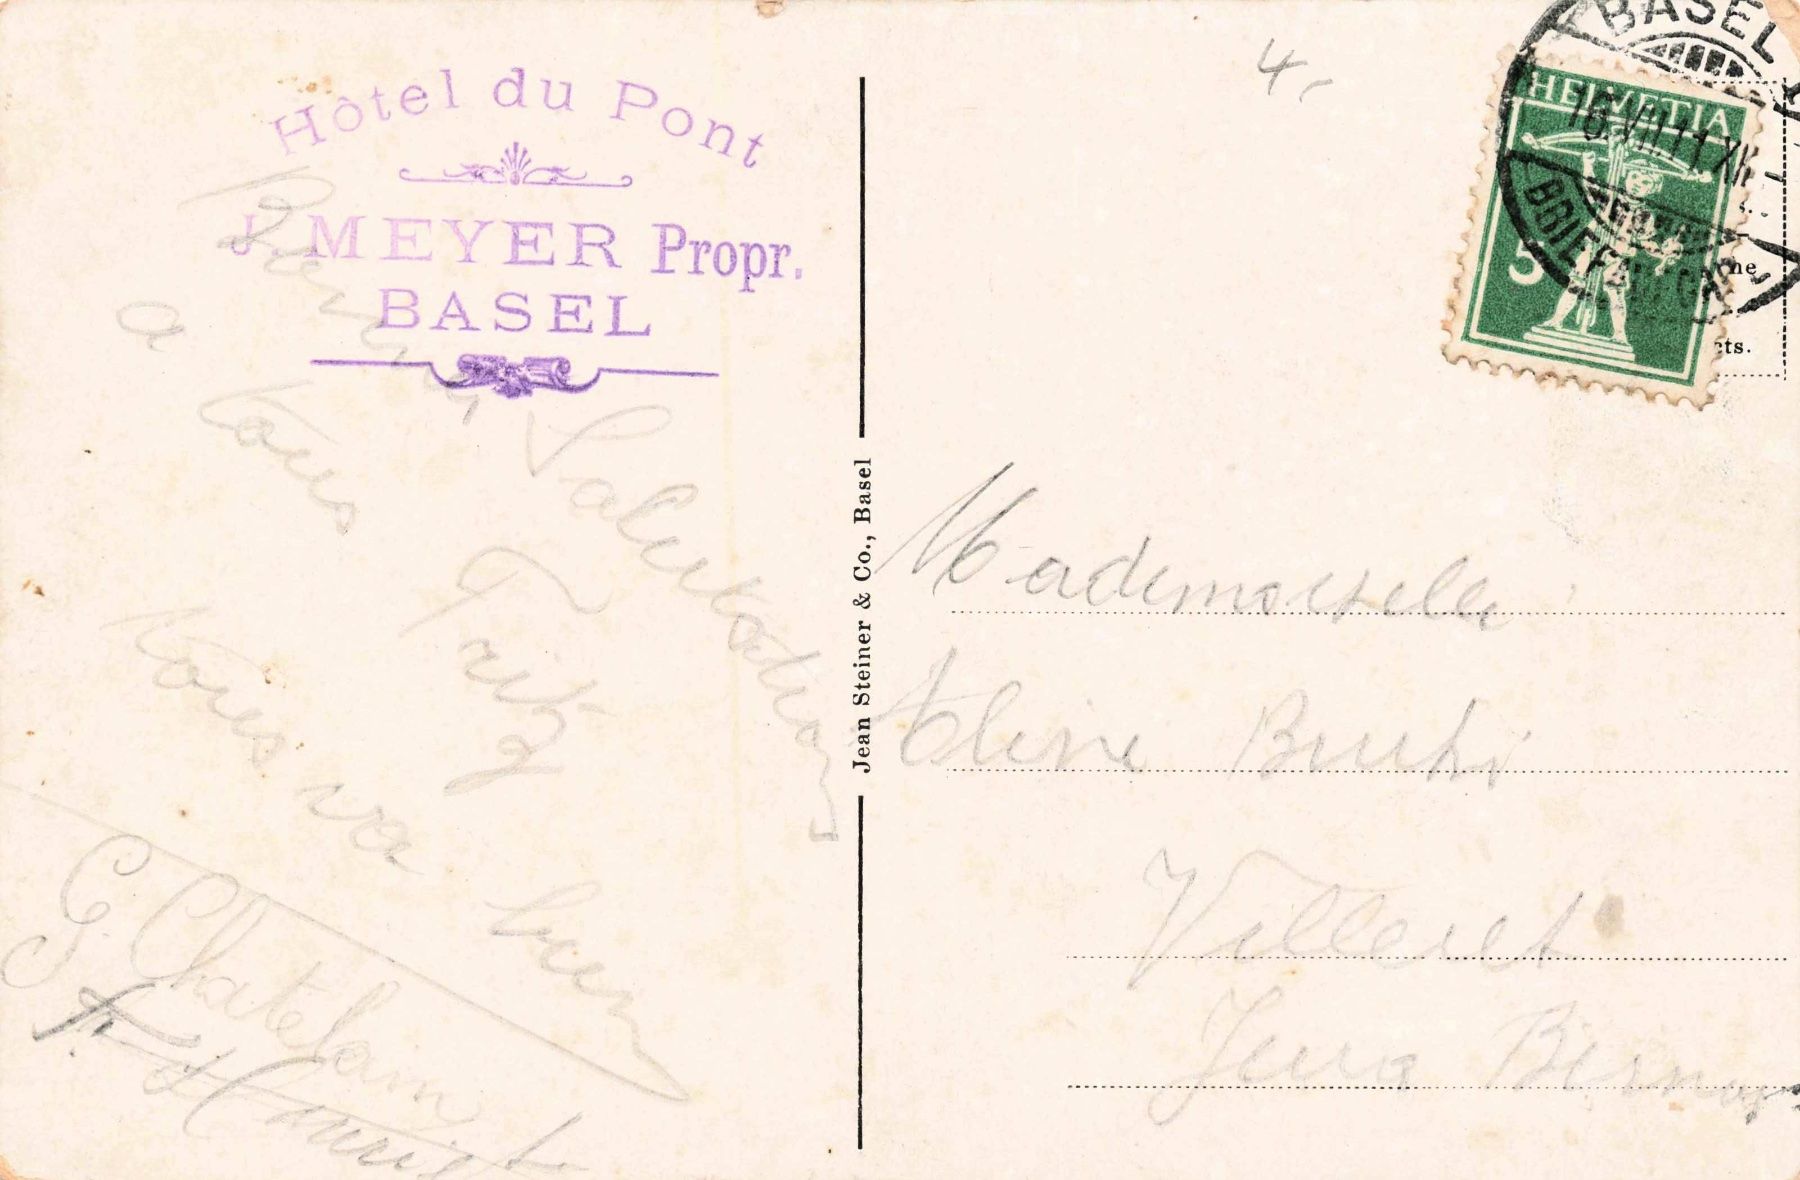 Hôtel du Pont
J. MEYER Propr.
BASEL
Bonnes Salutations
a tous
Fritz
tous va bien
G. Chatelain
Jean Steiner & Co., Basel
4.-
BASEL
16.VIII.11.XII
BRIEFAUFGABE
HELVETIA
5
cts.
Mademoiselle
Villeret
Jura Bernois